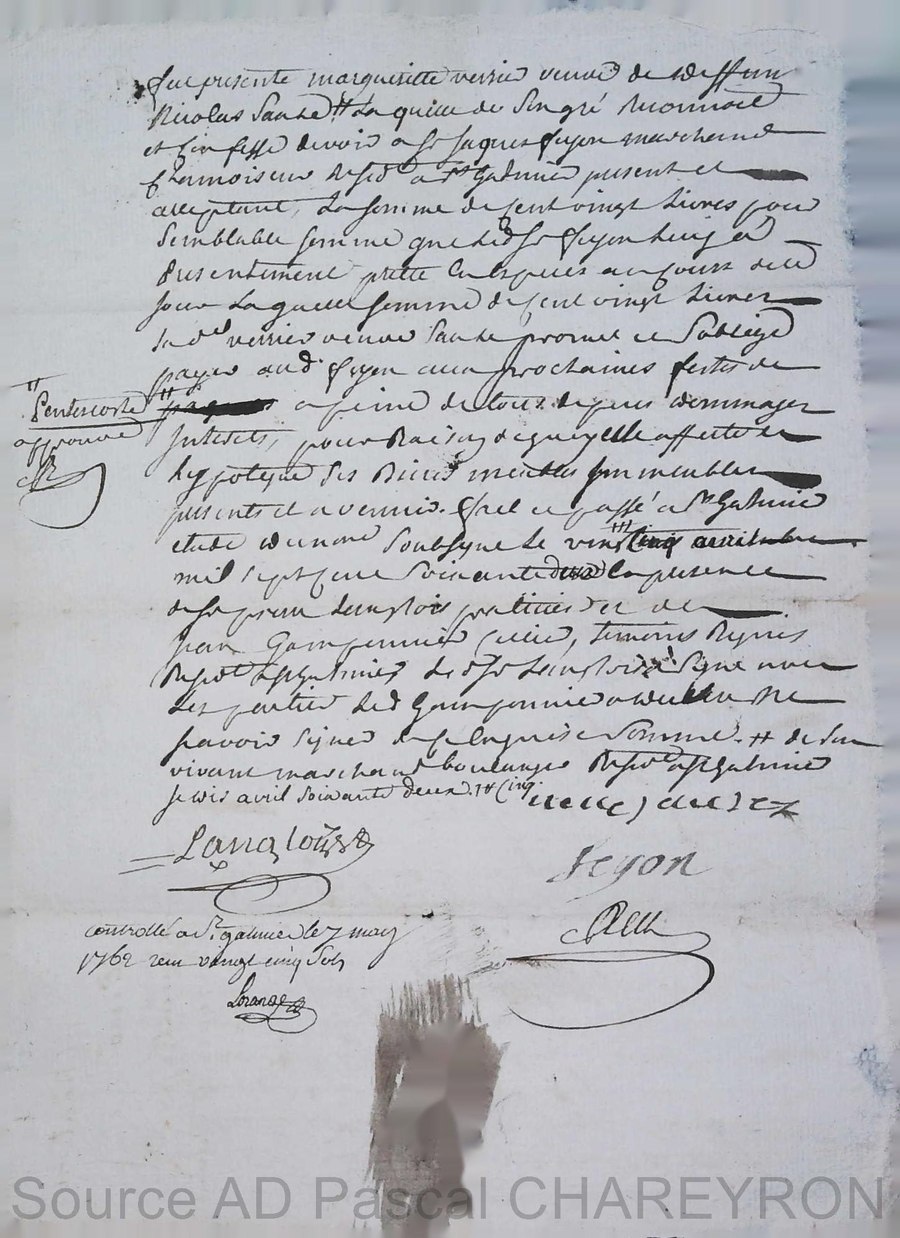 fut presente margueritte verrier veuve de deffun
Nicolas Sauze # Laquelle de Son gré Reconnoit
et Confesse devoir a Sr Jaques feyon marchand
Chamoiseur Resid a St Galmier present et
acceptant, La somme de Cent vingt Livres pour
Semblable somme que led Sr feyon luy a
presentement prette En Especes au Cours de ce
jour Laquelle somme de Cent vingt Livres
lad verrier veuve Sauze promet et Soblige
payer aud feyon aux prochaines festes de
# Pentecoste
approuvé
# a peine de tous depens dommages
Interets, pour Raison de quoy elle affecte et
hypoteque Ses Biens meubles Immeubles
presents et a venir. fait et passé a St Galmier
etude du nore Soubsigné Le vingt
mil Sept Cent Soixante deux En presence
de Sr pierre Langlois praticien et de
jean
temoins Requis
Resid a St Galmier led Sr Langlois a Signé avec
Les parties led a declaré ne
scavoir signer de ce Enquis et Somme. # de Son
vivant marchand boulanger Resid a St Galmier
avril soixante deux.
Langlois
feyon
controllé a St galmier le 7 may
1762 recu vaingt cinq Sols
Source AD Pascal CHAREYRON